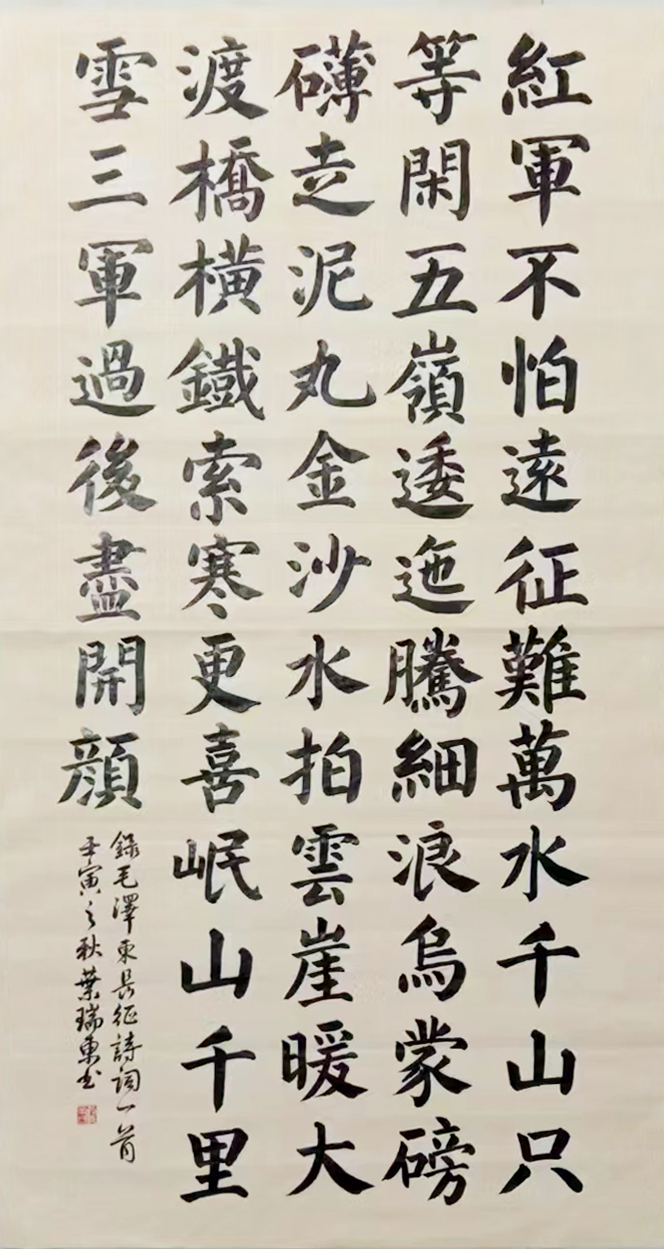 紅軍不怕遠征難萬水千山只
等閑五嶺逶迤騰細浪烏蒙磅
礴走泥丸金沙水拍雲崖暖大
渡橋橫鐵索寒更喜岷山千里
雪三軍過後盡開顔
錄毛澤東長征詩詞一首
壬寅之秋葉瑞東书